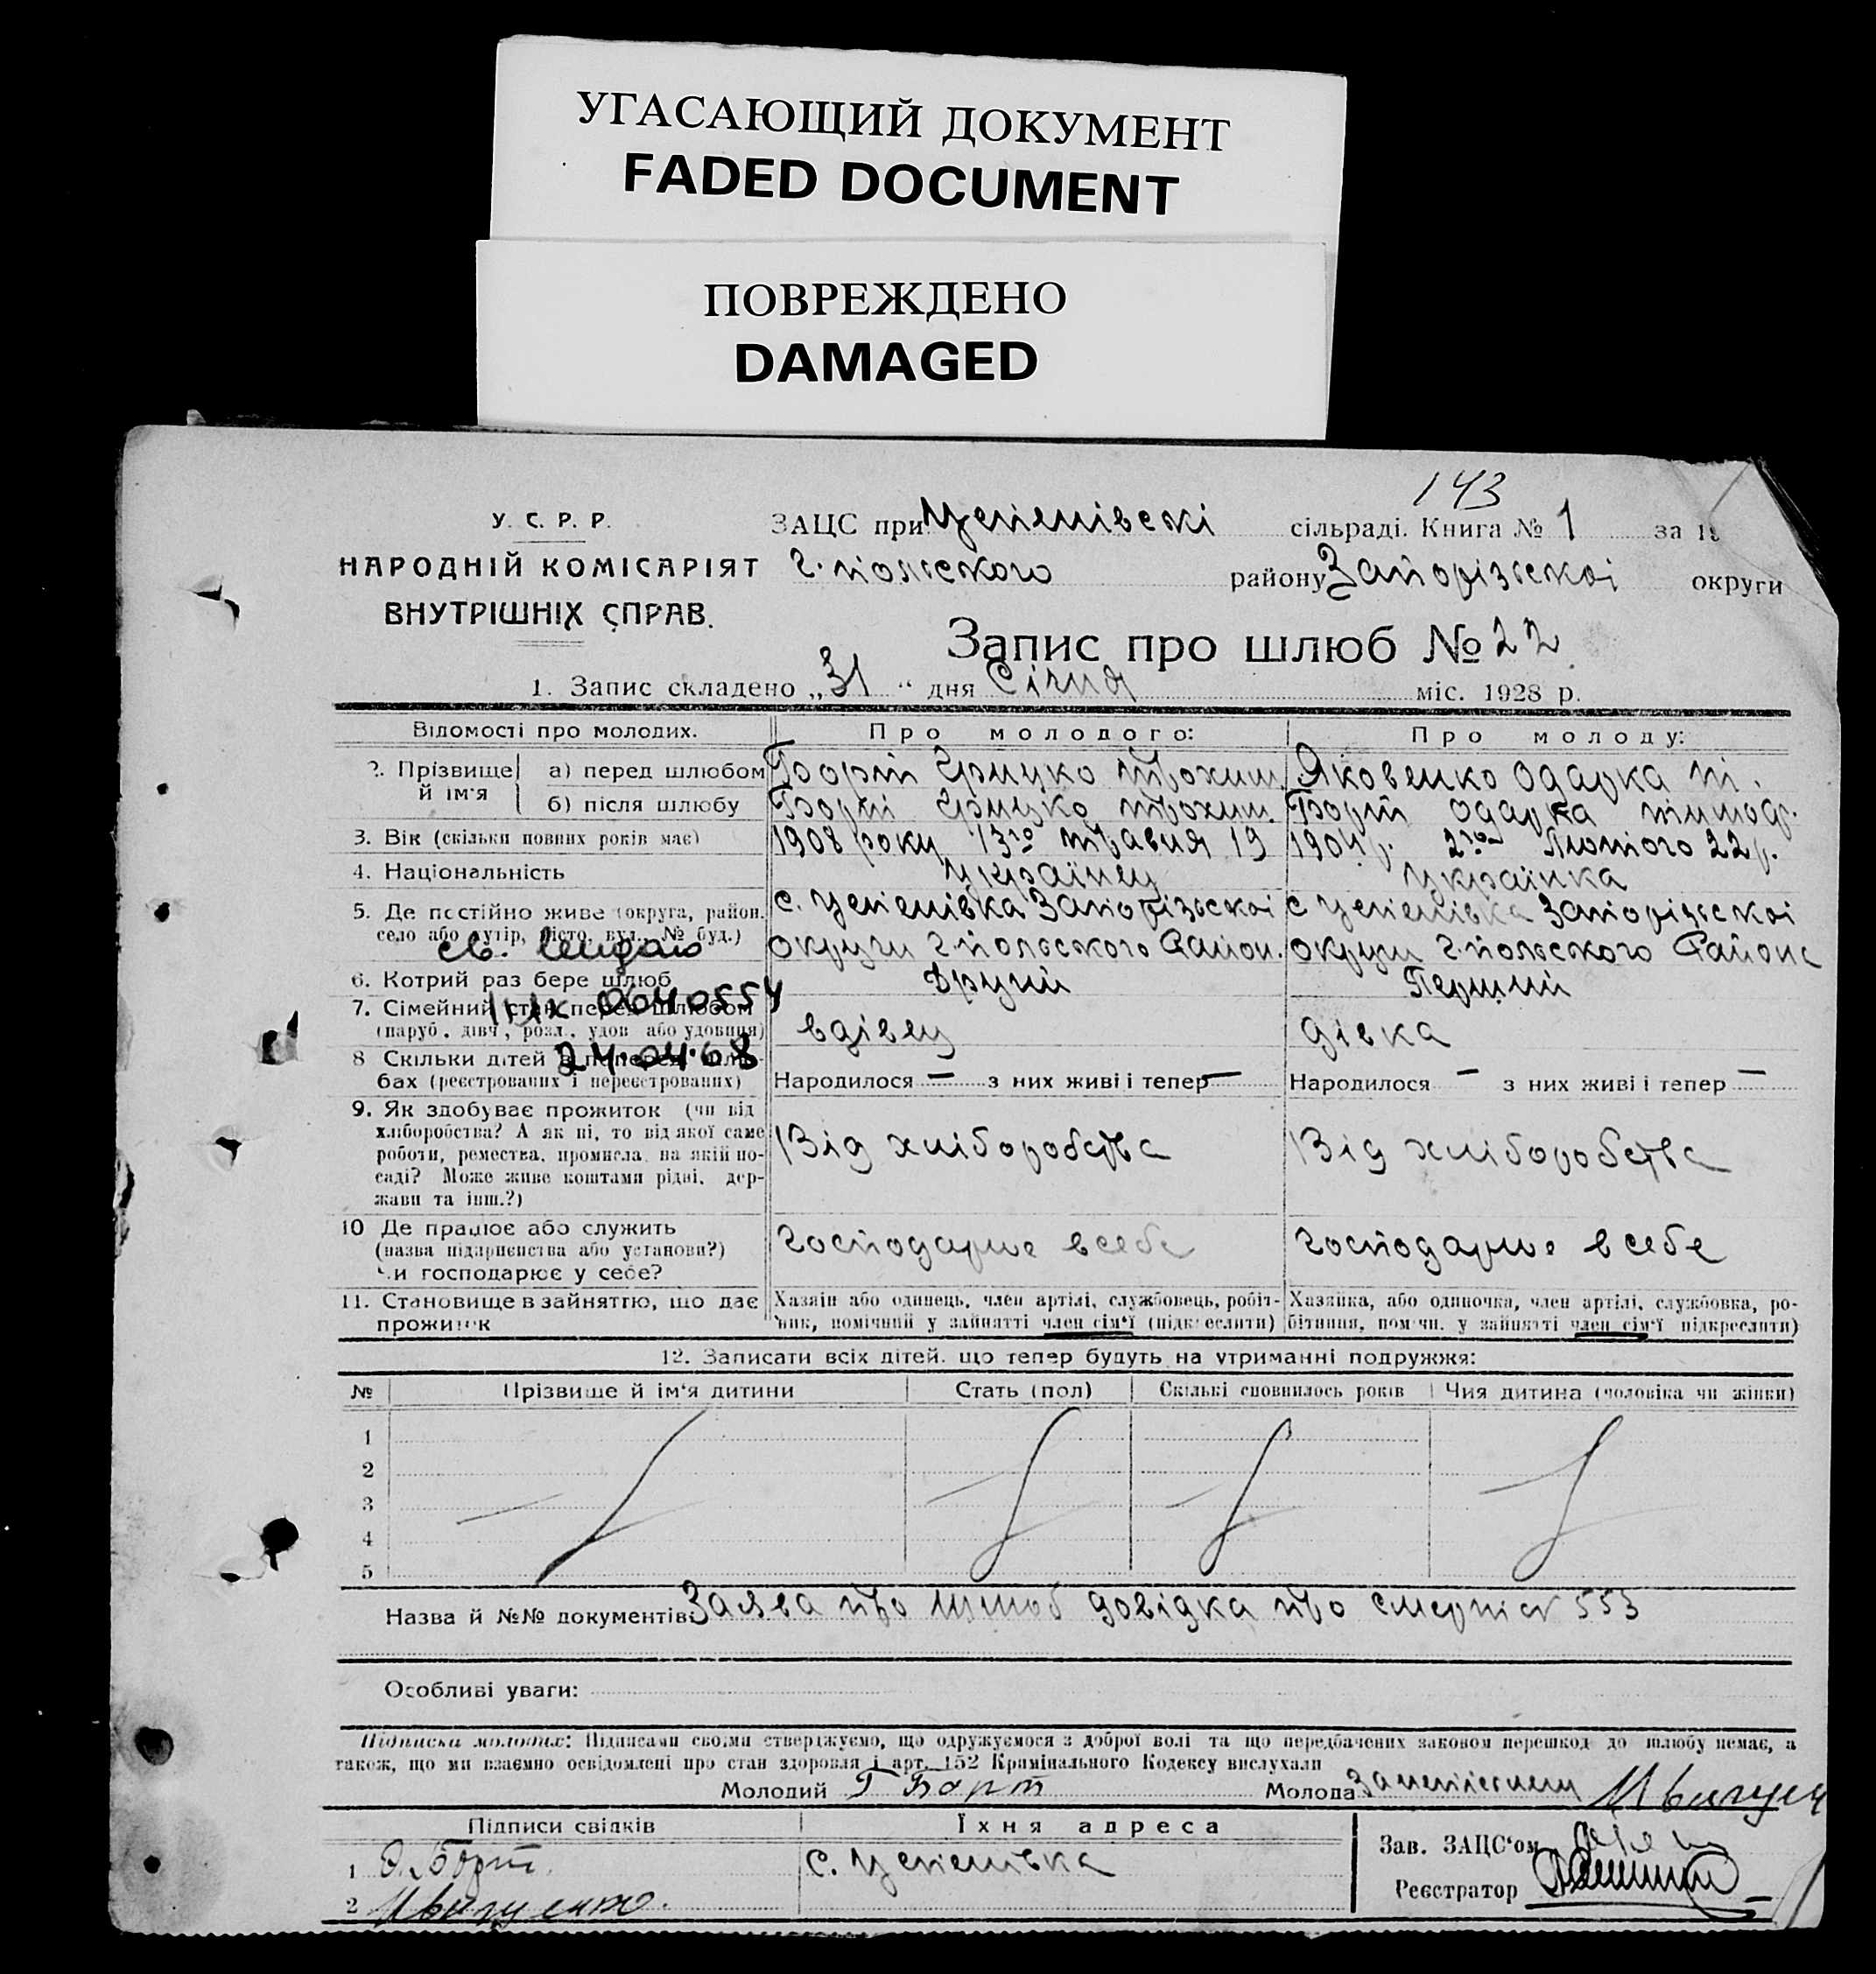 УГАСАЮЩИЙ ДОКУМЕНТ
FADED DOCUMENT
ПОВРЕЖДЕНО
DAMAGED
143
У. С. Р. Р.
НАРОДНІЙ КОМІСАРІЯТ
ВНУТРІШНІХ СПРАВ.
ЗАЦС при Успенівскі сільраді. Книга № 1 за 19
г. польского району Запорізської округи
Запис про шлюб № 22
1. Запис складено „31“ дня Січня міс. 1928 р.
Відомості про молодих. Про молодого: Про молоду:
2. Прізвище й ім'я
а) перед шлюбом Борт Грицко Трохим. Яковенко Одарка Ти.
б) після шлюбу Борт Грицко Трохим. Борт Одарка Тимоф.
3. Вік (скільки повних років має) 1908 року 13го травня 19 190 р. 2го Лютого 22 р.
4. Національність українец українка
5. Де постійно живе (округа, район, село або хутір, місто, вул., № буд.)
с. Успенівка Запорізскої округи г. польского Район.
с Успенівка Запорізскої округи г. польского Района
св. видано
6. Котрий раз бере шлюб Другий Перший
ІІІ ЖС 0640554
7. Сімейний стан перед шлюбом
(паруб., дівч., розл., удов. або удовиця) вдівец дівка
24.04.68
8 Скільки дітей в поперед. шлю-
бах (реєстрованих і нереєстрованих) Народилося — з них живі і тепер — Народилося — з них живі і тепер —
9. Як здобуває прожиток (чи від
хліборобства? А як ні, то від якої саме
роботи, ремества, промисла, на якій по-
саді? Може живе коштами рідні, дер-
жави та інш.?)
Від хліборобства Від хліборобства
10 Де працює або служить
(назва підприємства або установи?)
Чи господарює у себе?
господарює в себе господарює в себе
11. Становище в зайняттю, що дає
прожиток
Хазяїн або одинець, член артілі, службовець, робіт-
ник, помічний у зайнятті член сім'ї (підкреслити)
Хазяйка, або одиночка, член артілі, службовка, ро-
бітниця, помічн. у зайнятті член сім'ї підкреслити)
12. Записати всіх дітей, що тепер будуть на утриманні подружжя:
№ Прізвище й ім'я дитини Стать (пол) Скількі сповнилось років Чия дитина (чоловіка чи жінки)
1
2
3
4
5
Назва й №№ документів: Заява про шлюб довідка про смерть № 553
Особливі уваги:
Підписка молодих: Підписами своїми стверджуємо, що одружуємося з доброї волі та що передбачених законом перешкод до шлюбу немає, а
також, що ми взаємно освідомлені про стан здоровля і арт. 152 Кримінального Кодексу вислухали
Молодий Г Борт Молода
Підписи свідків Їхня адреса
1 Борт. с. Успенівка
2
Зав. ЗАЦС'ом
Реєстратор